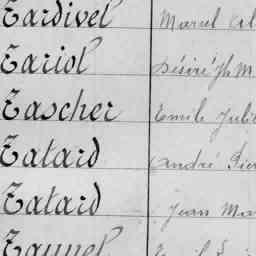 Tardivel Marcel Al
Tariol Désiré Jh M
Tascher Emile Julie
Tatard André Pier
Tatard Jean Mar
Taunel